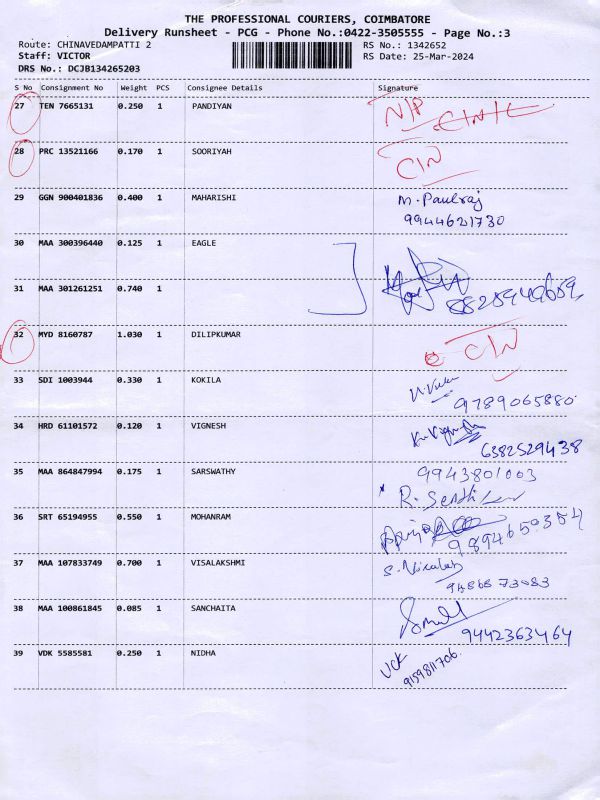 THE PROFESSIONAL COURIERS, COIMBATORE
Delivery Runsheet - PCG - Phone No.:0422-3505555 - Page No.:3
Route: CHINAVEDAMPATTI 2 RS No.: 1342652
Staff: VICTOR RS Date: 25-Mar-2024
DRS No.: DCJB134265203
S No Consignment No Weight PCS Consignee Details Signature
27 TEN 7665131 0.250 1 PANDIYAN N/P
28 PRC 13521166 0.170 1 SOORIYAH CIN
29 GGN 900401836 0.400 1 MAHARISHI M. Paulraj
9944621730
30 MAA 300396440 0.125 1 EAGLE
31 MAA 301261251 0.740 1
32 MYD 8160787 1.030 1 DILIPKUMAR CIN
33 SDI 1003944 0.330 1 KOKILA
9789065880
34 HRD 61101572 0.120 1 VIGNESH
6382529438
35 MAA 864847994 0.175 1 SARSWATHY 9943801003
36 SRT 65194955 0.550 1 MOHANRAM
9894650354
37 MAA 107833749 0.700 1 VISALAKSHMI
38 MAA 100861845 0.085 1 SANCHAITA
9442363464
39 VDK 5585581 0.250 1 NIDHA
9159811706